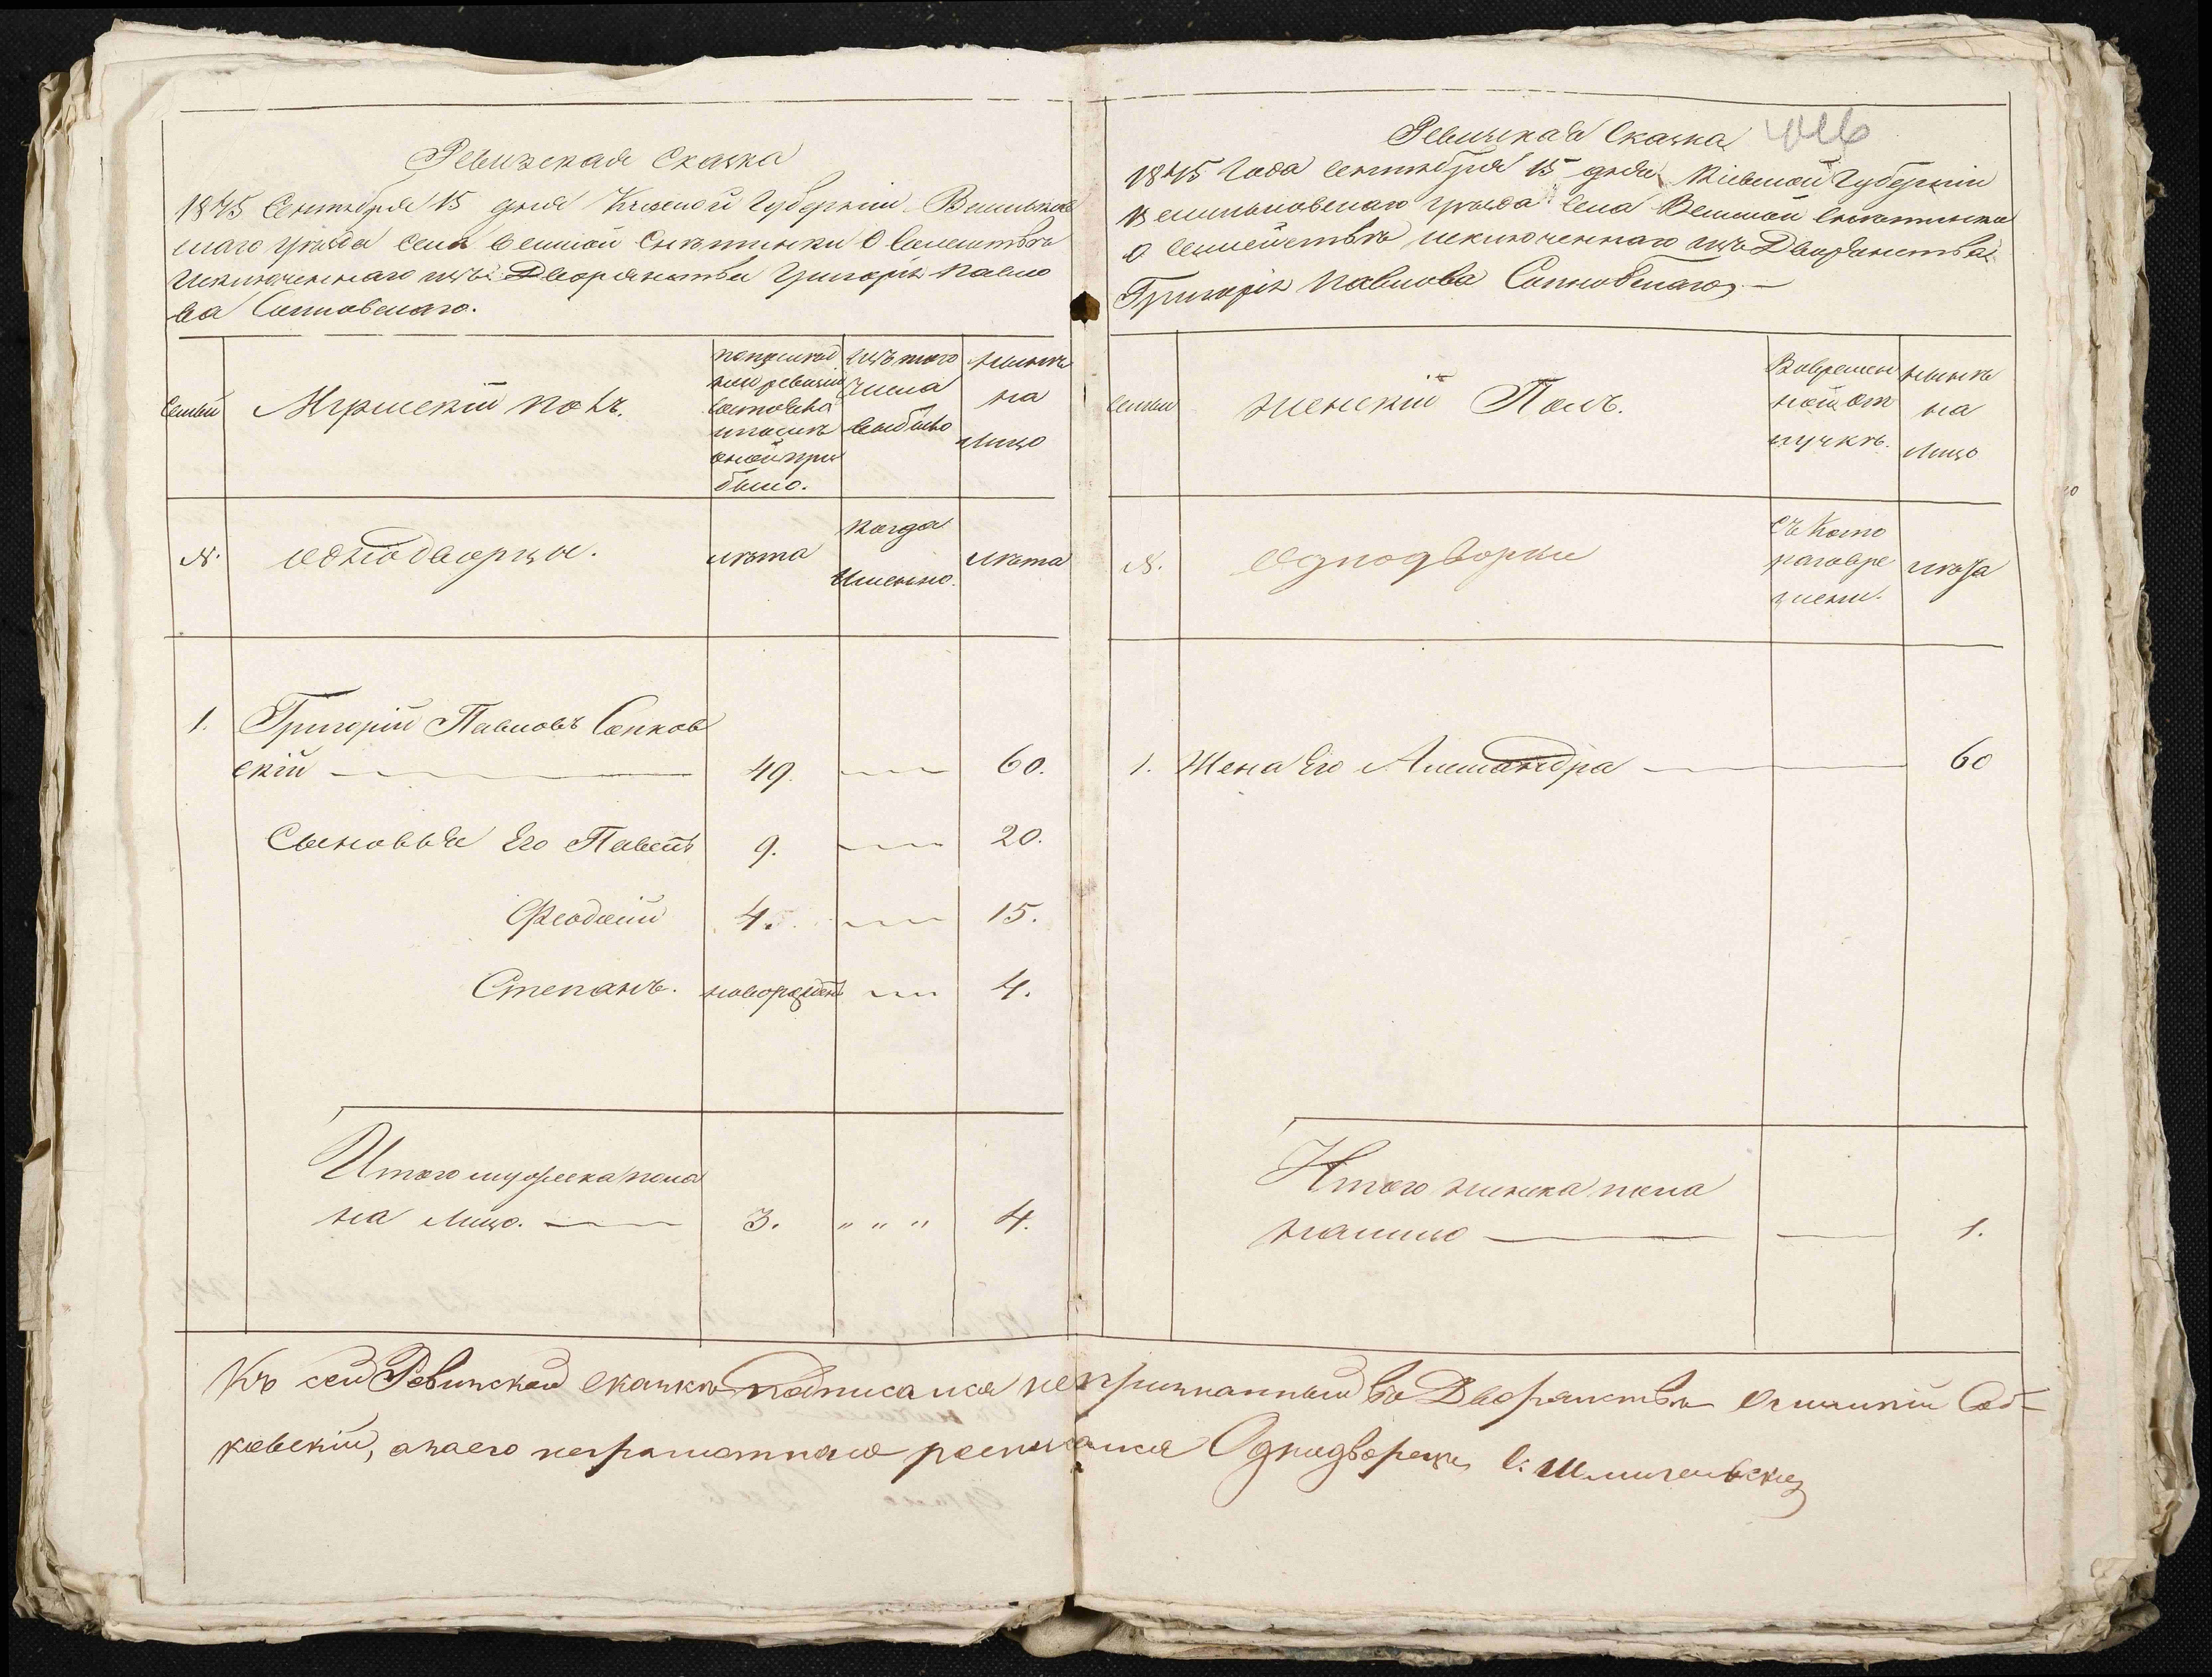 Ревизская Сказка
1845 Сентября 15 дня Киевской Губерніи Васильков
скаго уѣзда села Великой Снѣтинки О Семействѣ
Исключеннаго изъ Дворянства Григорія Павло
ва Сопковскаго.
Семьи
Мужескій полъ.
по послѣд
ней ревизіи
состояло
и послѣ
оной при
было.
Изъ того
числа
выбыло
Нынѣ
на
лицо
№.
Однодворцы.
лѣта
Когда
Именно.
Лѣта
1. Григорій Павловъ Сопков
скій 49. 60.
Сыновья Его Павелъ 9. 20.
Феодосій 4. 15.
Степанъ. новорожденъ 4.
Итого мужеска пола
на Лицо. 3. " " " 4.
Ревизская Сказка
1845 Года Сентября 15 дня Кіевской Губерніи
Васильковскаго уѣзда Села Великой Снѣтинки
О Семействѣ исключеннаго изъ Дворянства
Григорія Павлова Сопковскаго
Семьи
Женскій Полъ.
Во времен
ной от
лучкѣ.
Нынѣ
на
Лицо
№.
Однодворки
Съ Кото
раго вре
мени.
лѣта
1. Жена Его Александра 60
Итого женска пола
налицо 1.
Къ сей Ревизской сказкѣ подписался непризнанный въ Дворянствѣ
ковскій, а за его неграмотнаго росписался Однодворецъ С: